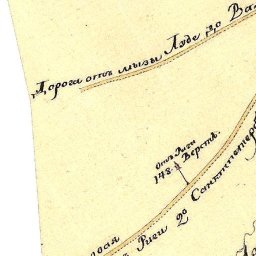 Дорога отъ мызы Люде до Ва
отъ Риги
148. Верстъ.
Риги до Санктпетер